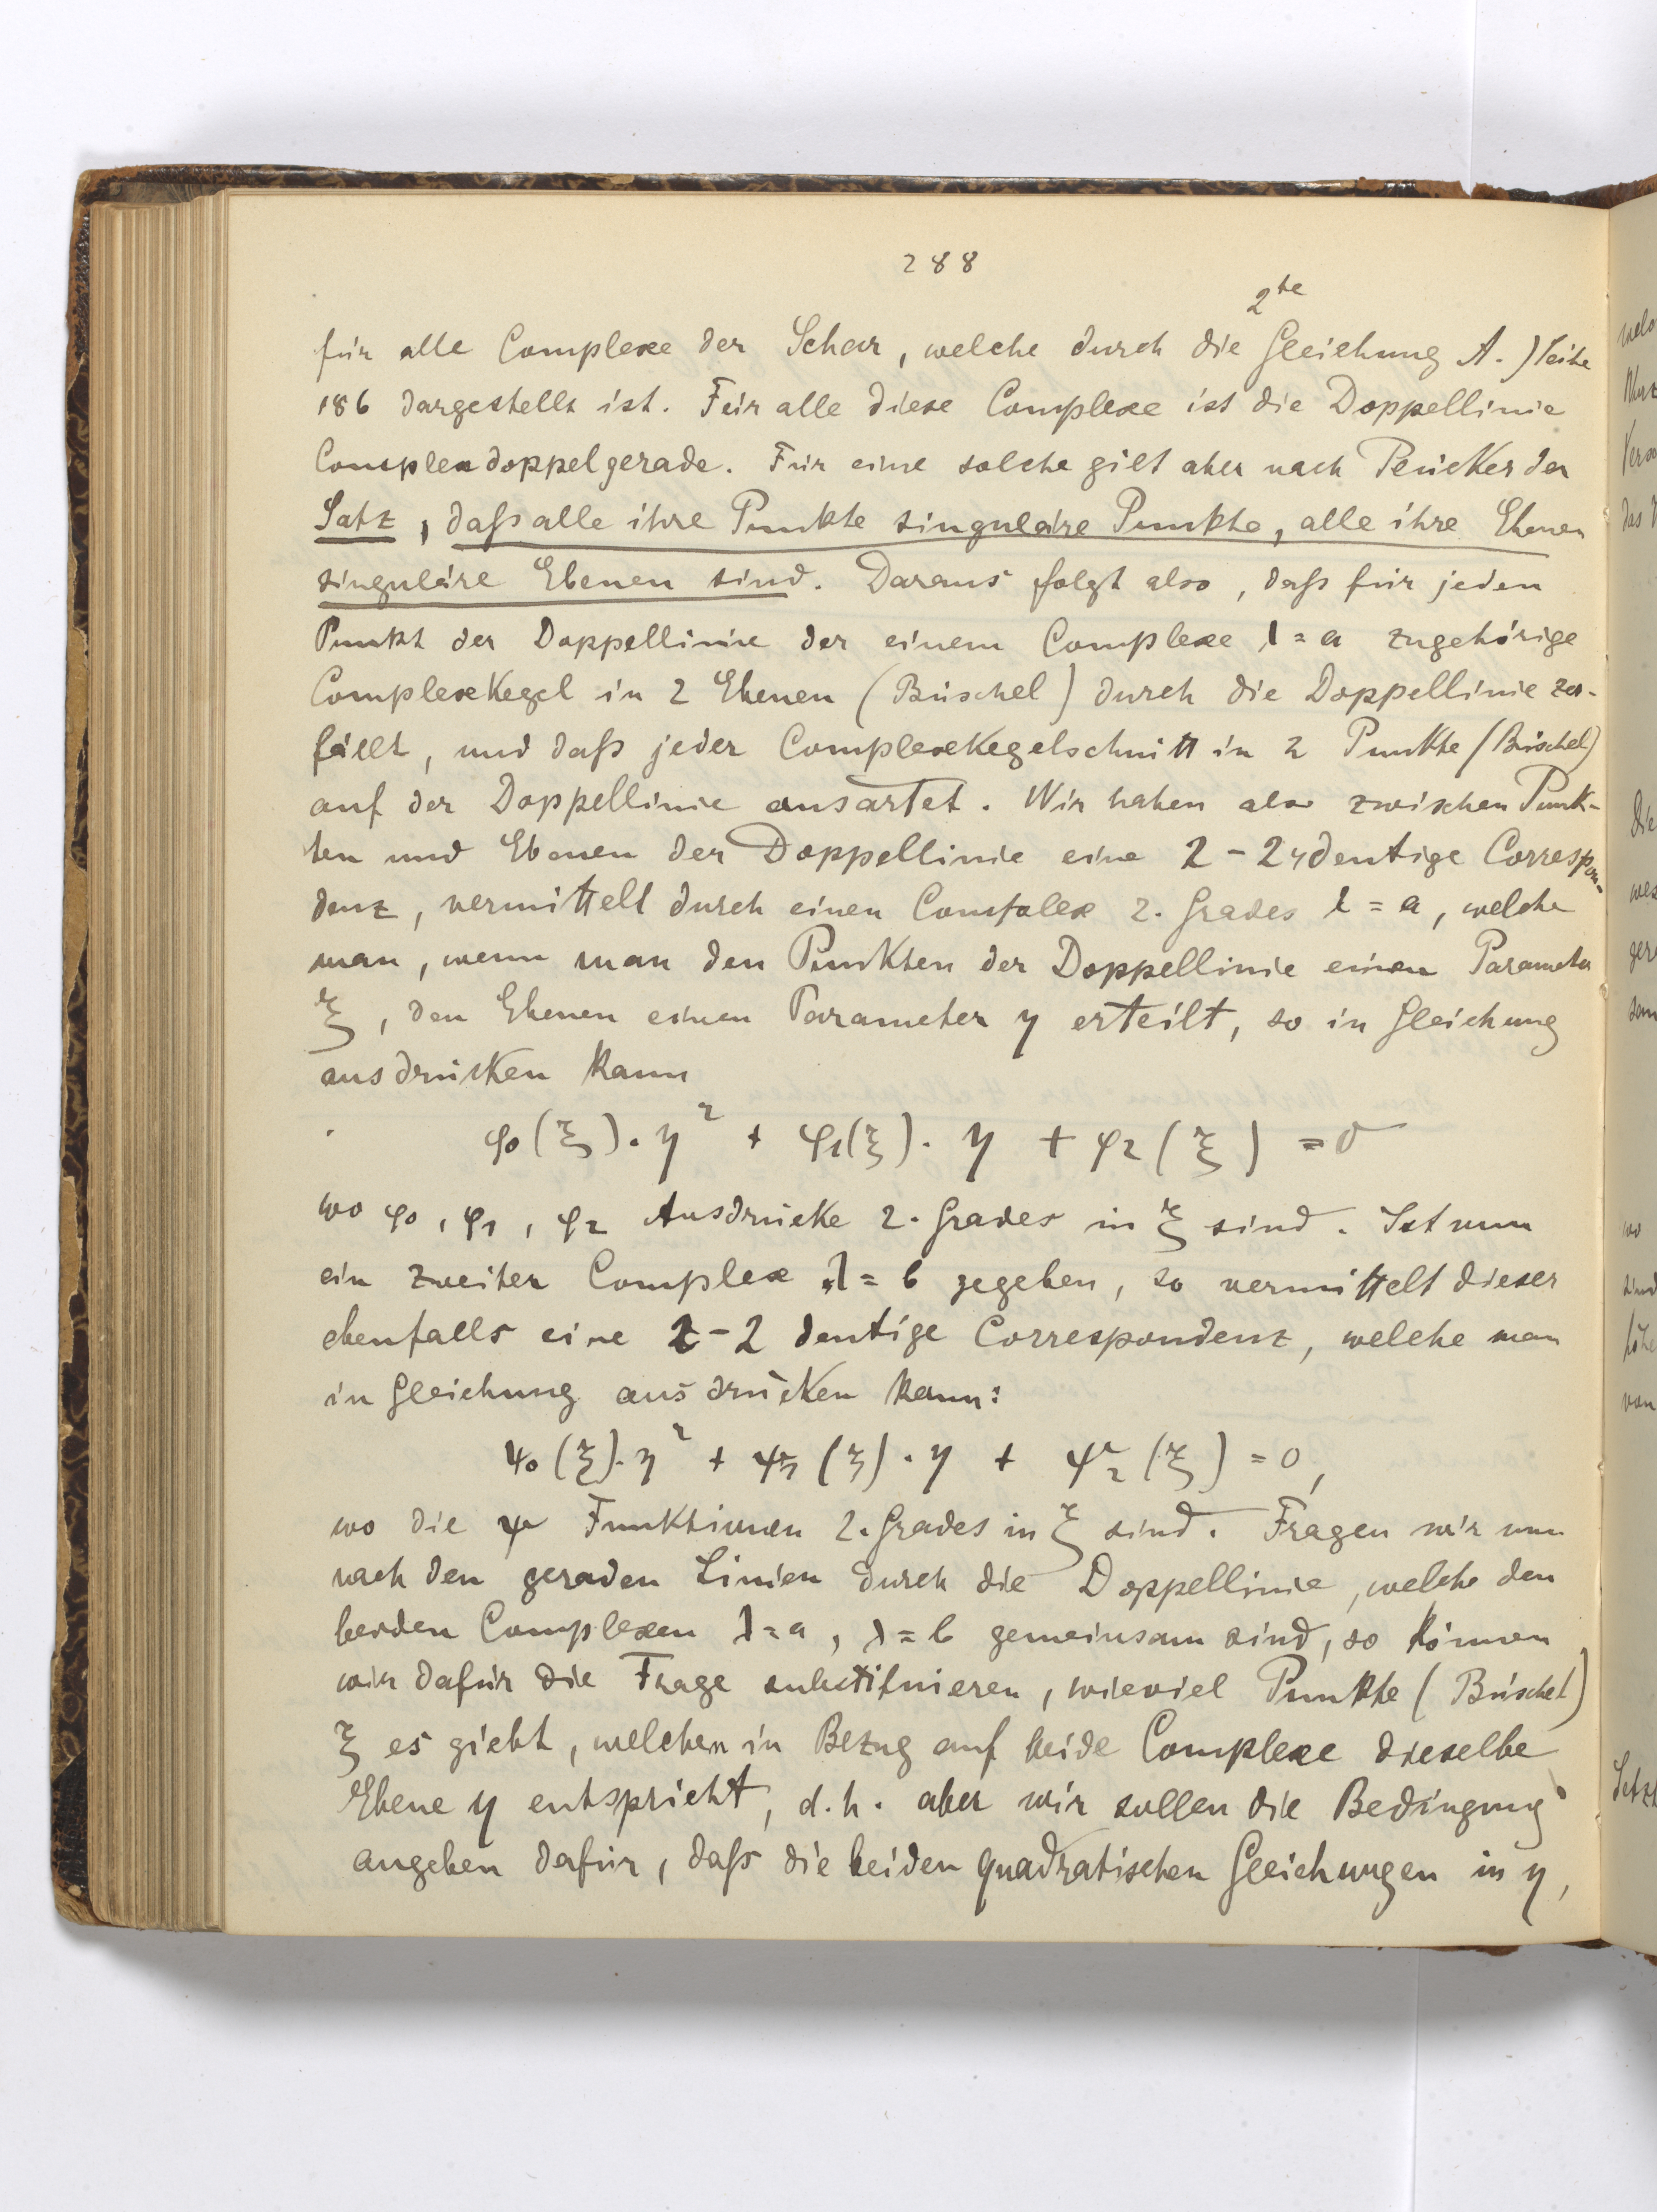 288
2te
für alle Complexe der Schar, welche durch die Gleichung A.) Seite
186 dargestellt ist. Für alle diese Complexe ist die Doppellinie
Complexdoppelgerade. Für eine solche gilt aber nach der
Satz, daſs alle ihre Punkte singuläre Punkte, alle ihre Ebenen
singuläre Ebenen sind. Daraus folgt also, daſs für jeden
Punkt der Doppellinie der einem Complexe λ = a zugehörige
Complexkegel in 2 Ebenen (Büschel) durch die Doppellinie zer-
fällt, und daſs jeder Complexkegelschnitt in 2 Punkte (Büschel)
auf der Doppellinie ausartet. Wir haben also zwischen Punk-
ten und Ebenen der Doppellinie eine 2-2deutige Correspon-
denz, vermittelt durch einen Complex 2. Grades λ = a, welche
man, wenn man den Punkten der Doppellinie einen Parameter
ξ, den Ebenen einen Parameter η erteilt, so in Gleichung
ausdrücken kann
φ0(ξ)·η² + φ1(ξ)·η + φ2(ξ) = 0
wo φ0, φ1, φ2 Ausdrücke 2. Grades in ξ sind. Ist nun
ein zweiter Complex λ = b gegeben, so vermittelt dieser
ebenfalls eine 2-2 deutige Correspondenz, welche man
in Gleichung ausdrücken kann:
ψ0(ξ)·η² + ψ1(ξ)·η + ψ2(ξ) = 0,
wo die ψ Funktionen 2. Grades in ξ sind. Fragen wir nun
nach den geraden Linien durch die Doppellinie, welche den
beiden Complexen λ = a, λ = b gemeinsam sind, so können
wir dafür die Frage substituieren, wieviel Punkte (Büschel)
ξ es giebt, welchen in Bezug auf beide Complexe dieselbe
Ebene η entspricht, d.h. aber wir sollen die Bedingung
angeben dafür, daſs die beiden quadratischen Gleichungen in η,